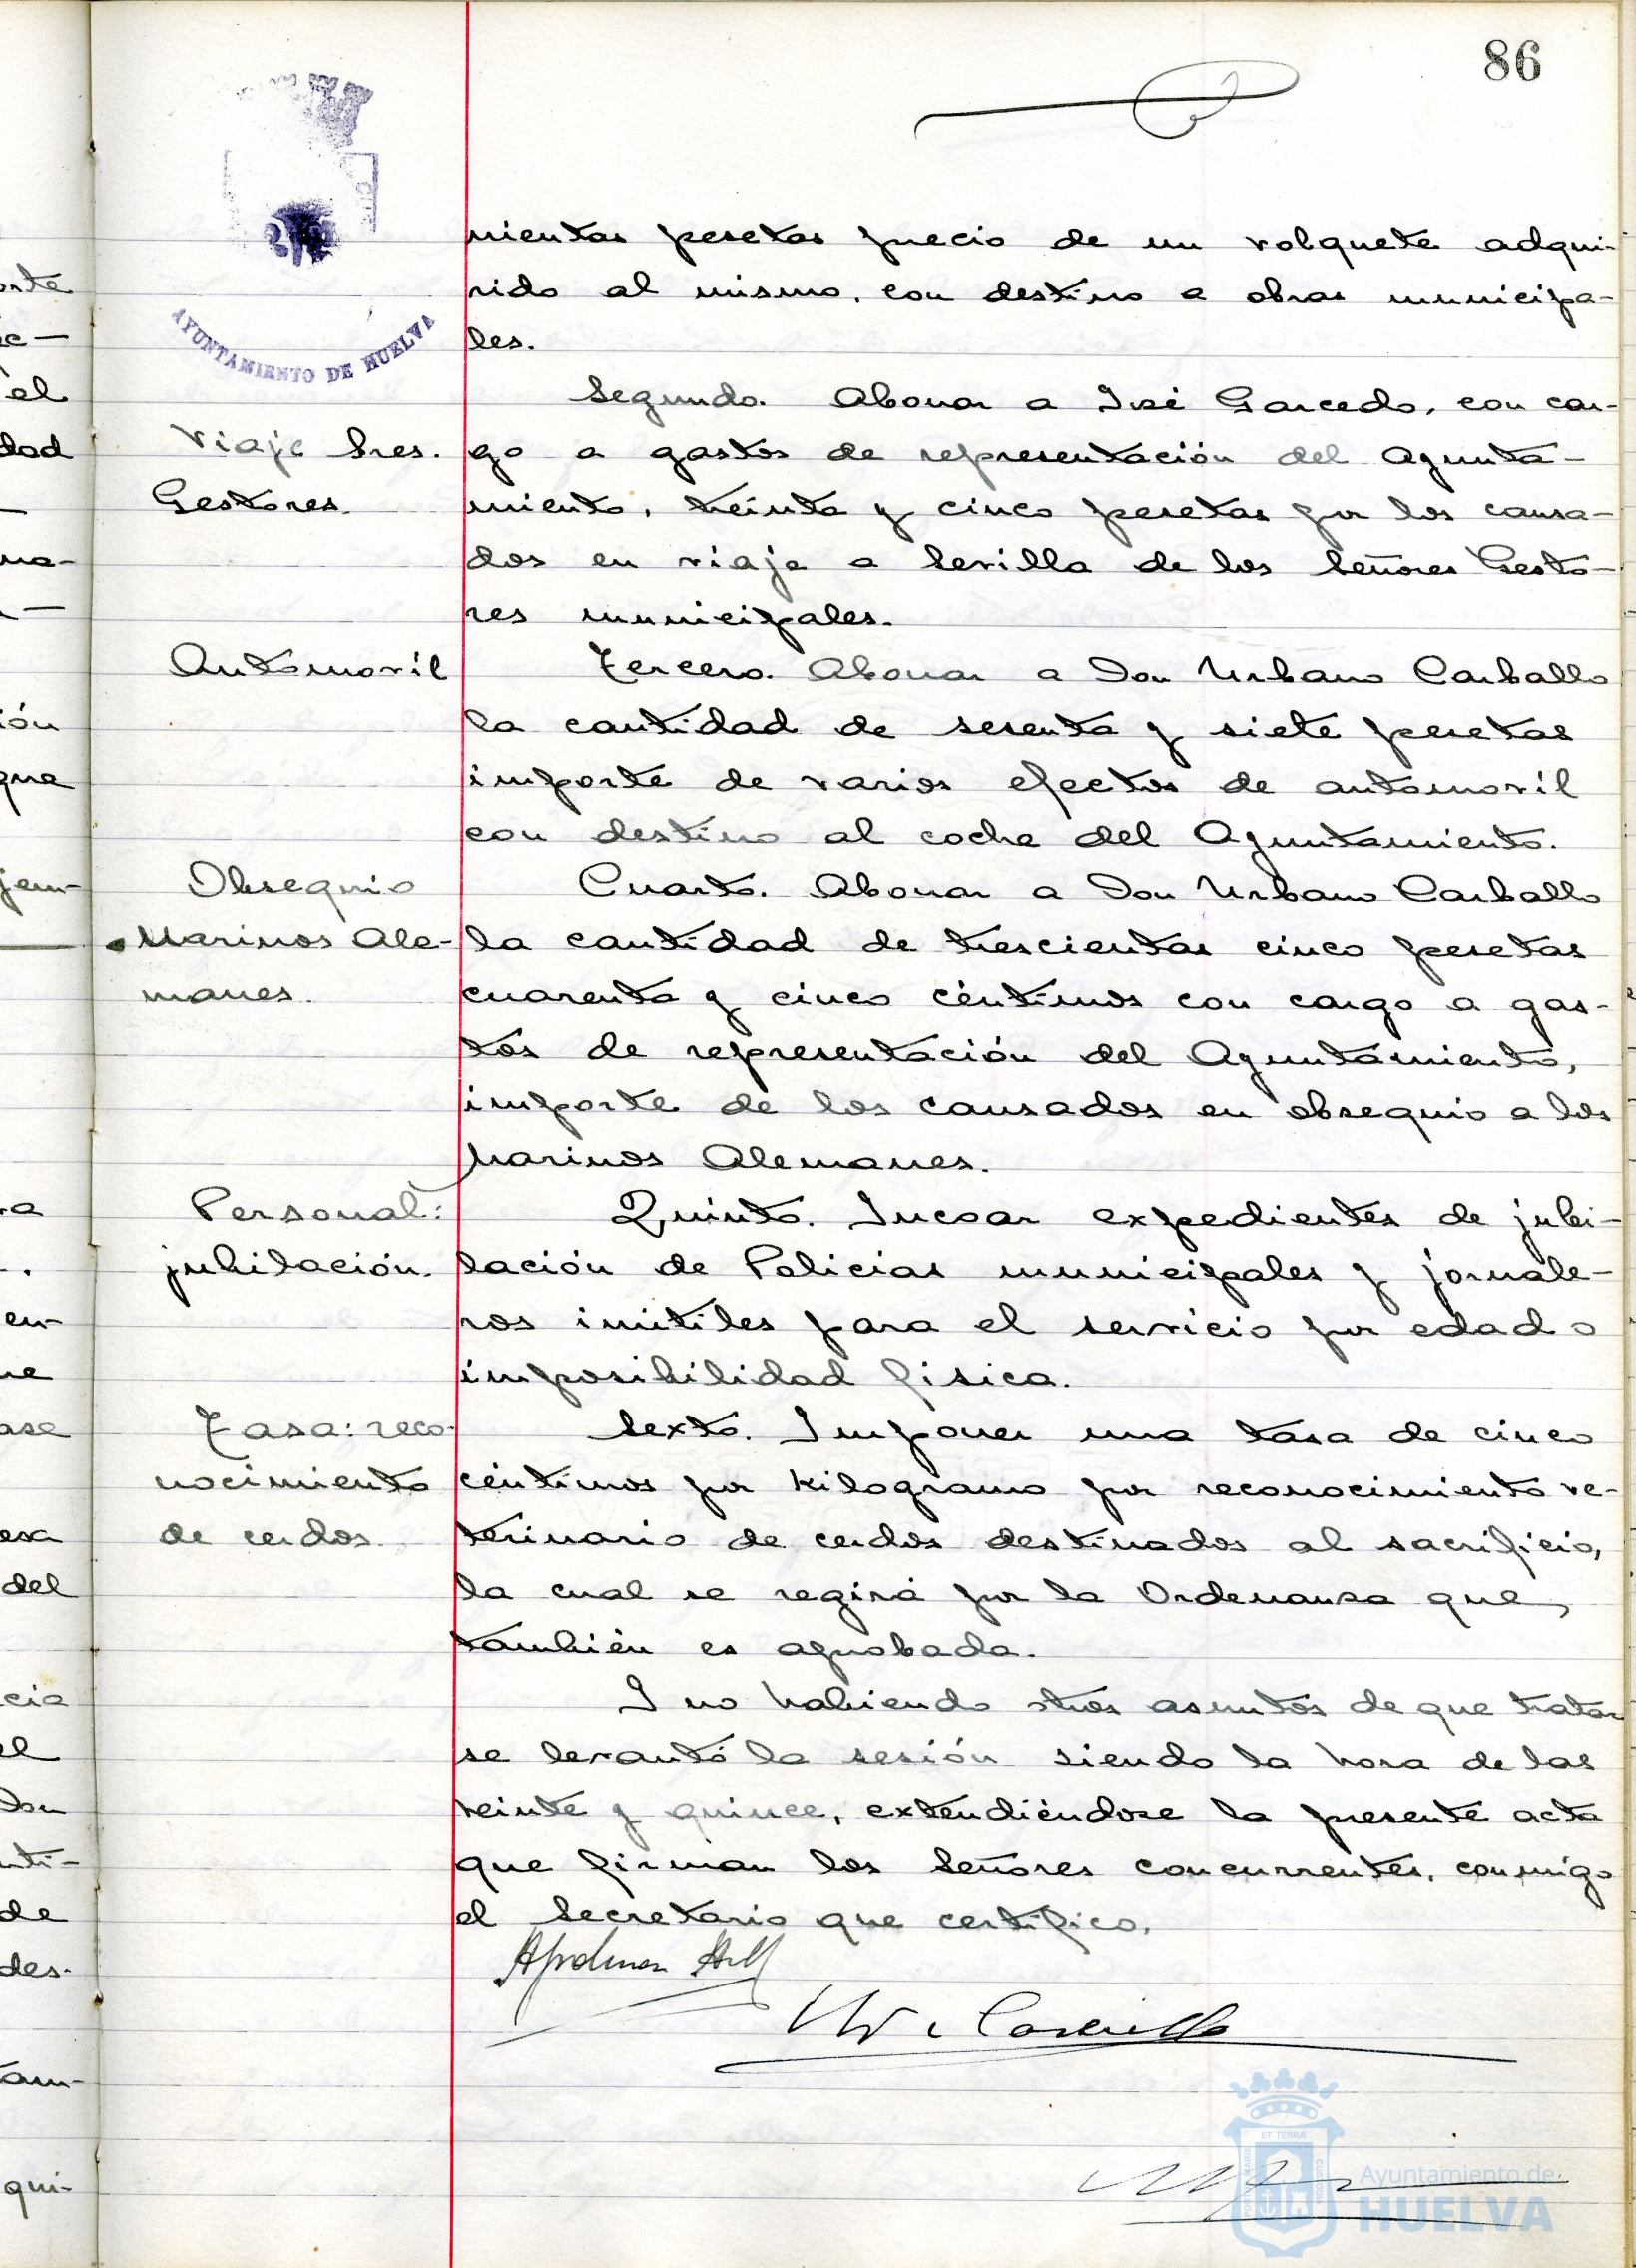 86
AYUNTAMIENTO DE HUELVA
nientas pesetas precio de un volquete adqui-
rido al mismo, con destino a obras municipa-
les.
Segundo. Abonar a José Garcedo, con car-
Viaje Sres.
go a gastos de representación del Ayunta-
Gestores.
miento, treinta y cinco pesetas por los causa-
dos en viaje a Sevilla de los Señores Gesto-
res municipales.
Automovil
Tercero. Abonar a Don Urbano Carballo
la cantidad de sesenta y siete pesetas
importe de varios efectos de automovil
con destino al coche del Ayuntamiento.
Obsequio
Cuarto. Abonar a Don Urbano Carballo
Marinos Ale-
la cantidad de trescientas cinco pesetas
manes.
cuarenta y cinco céntimos con cargo a gas-
tos de representación del Ayuntamiento,
importe de los causados en obsequio a los
Marinos Alemanes.
Personal:
Quinto. Incoar expedientes de jubi-
jubilación.
lación de Policías municipales y jornale-
ros inútiles para el servicio por edad o
imposibilidad física.
Tasa: reco-
Sexto. Imponer una tasa de cinco
nocimiento
céntimos por kilogramo por reconocimiento ve-
de cerdos.
terinario de cerdos destinados al sacrificio,
la cual se regirá por la Ordenanza que,
también es aprobada.
Y no habiendo otros asuntos de que tratar
se levantó la sesión siendo la hora de las
veinte y quince, extendiéndose la presente acta
que firman los Señores concurrentes, conmigo
el Secretario que certifico.
Ayuntamiento de
HUELVA